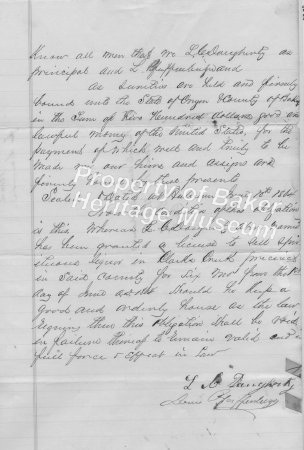 Know all men that we L C Daugherty as
principal and L
as Sureties are held and firmly
bound unto the State of Oregon County of Baker
in the Sum of Five Hundred dollars good and
lawful money of the United States, for the
payment of which well and truly to be
made we our Heirs and assigns are
firmly by these presents
Sealed Dated at June 18th
Property of Baker
Heritage Museum
The of this obligation
is this, Whereas L C
has been granted a license to sell Spir
ituous liquor in Clarks Creek precinct
in Said County for Six Mo from the
day of June Should he Keep a
good and orderly House as the law
requires then this Obligation shall be void
in failure thereof to remain valid and in
full force & effect in law
L C Daugherty
Louis